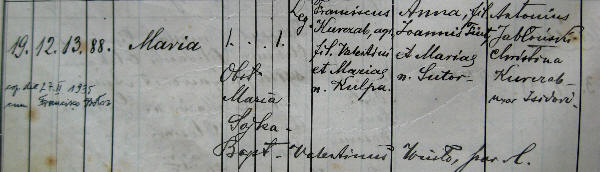 Leg. Franciscus Anna, fil. Antonius
Kurzab, agr. Joannis Jabłoński
19. 12. 13. 88. Maria 1. . 1. fil. Valentini et Mariae Christina
Obst. et Mariae n. Sutor. Kurzab
cop. die 17.II 1935 Maria n. Kulpa. uxor Isidori.
cum Francisco
Sojka
Bapt. Valentinus